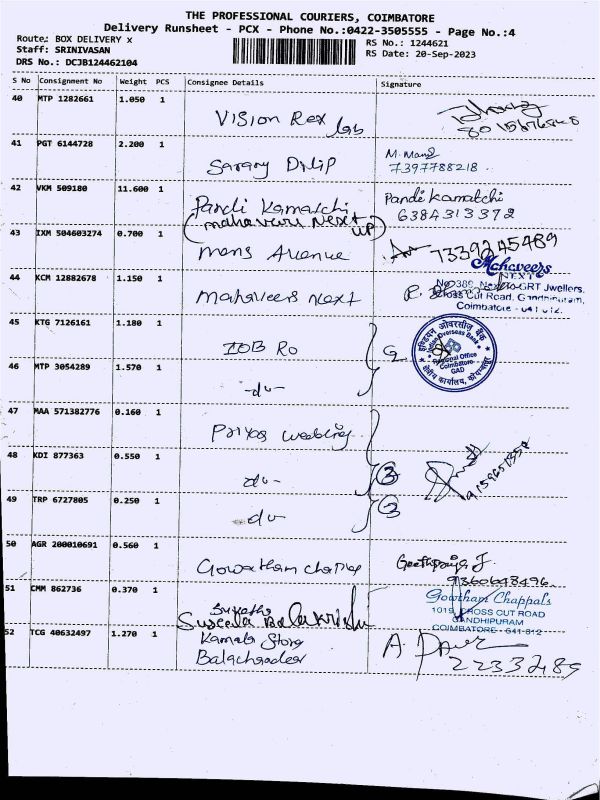 THE PROFESSIONAL COURIERS, COIMBATORE
Delivery Runsheet - PCX - Phone No.:0422-3505555 - Page No.:4
Route: BOX DELIVERY x
RS No.: 1244621
Staff: SRINIVASAN
RS Date: 20-Sep-2023
DRS No.: DCJB124462104
S No Consignment No Weight PCS Consignee Details Signature
40 MTP 1282661 1.050 1
Vision Rex lab
41 PGT 6144728 2.200 1
Sarary Dilip
M. Mani
7397788218
42 VKM 509180 11.600 1
Pandi Kamatchi
(mahaveers Next UP)
Pandi Kamatchi
6384313372
43 IXM 504603274 0.700 1
mens Avenue
7339245489
Mahaveers
NEXT
44 KCM 12882678 1.150 1
mahaveers next
No 380, Next to GRT Jwellers,
Cross Cut Road, Gandhipuram,
Coimbatore - 641 012.
45 KTG 7126161 1.180 1
IOB RO
इण्डियन ओवरसीज़ बैंक
Indian Overseas Bank
Regional Office
Coimbatore
GAD
क्षेत्रीय कार्यालय, कोयम्बत्तूर
46 MTP 3054289 1.570 1
-do-
47 MAA 571382776 0.160 1
Priya wedding
48 KDI 877363 0.550 1
do-
3
49 TRP 6727805 0.250 1
-do-
3
50 AGR 200010691 0.560 1
Gowtham chappal
Geethpriya J.
9360648496
51 CMM 862736 0.370 1
Suseela Balakrish
Gowtham Chappals
1019, CROSS CUT ROAD
GANDHIPURAM
COIMBATORE - 641 012
52 TCG 40632497 1.270 1
Kamala Store
Balachander
2233489